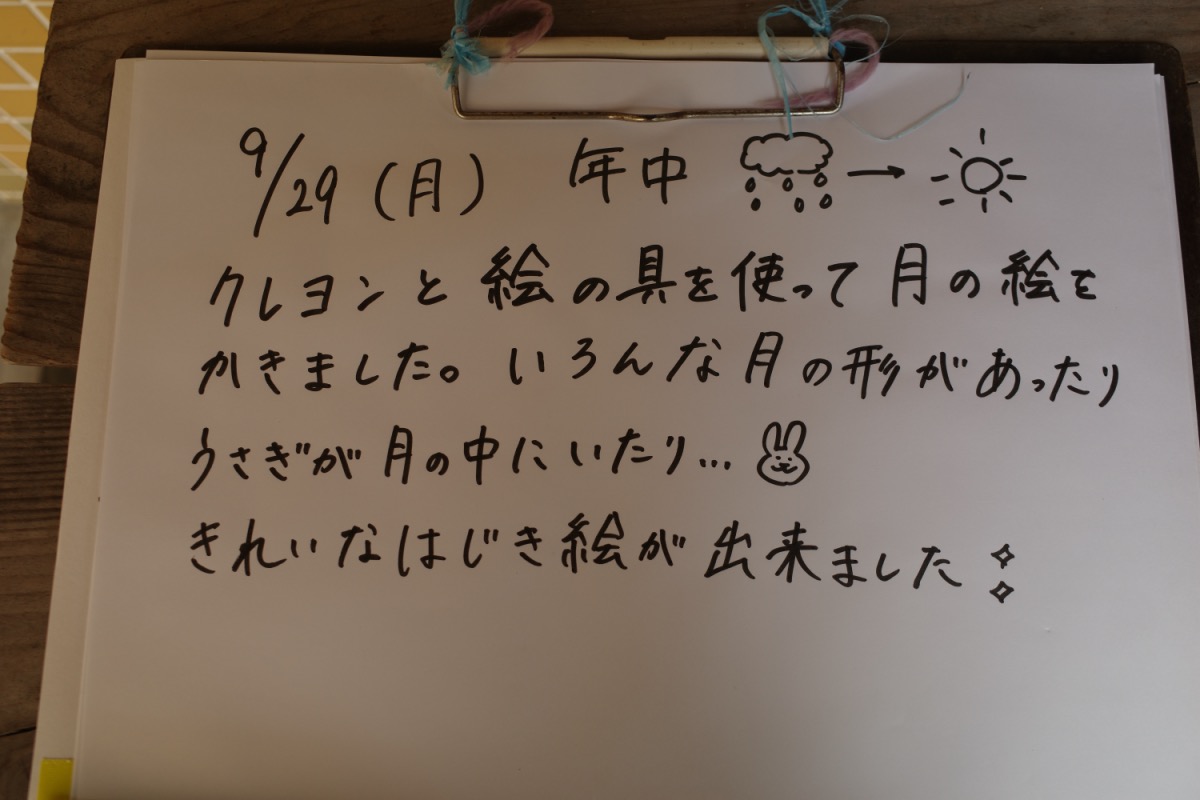 9/29(月) 年中
クレヨンと絵の具を使って月の絵を
かきました。いろんな月の形があったり
うさぎが月の中にいたり...
きれいなはじき絵が出来ました